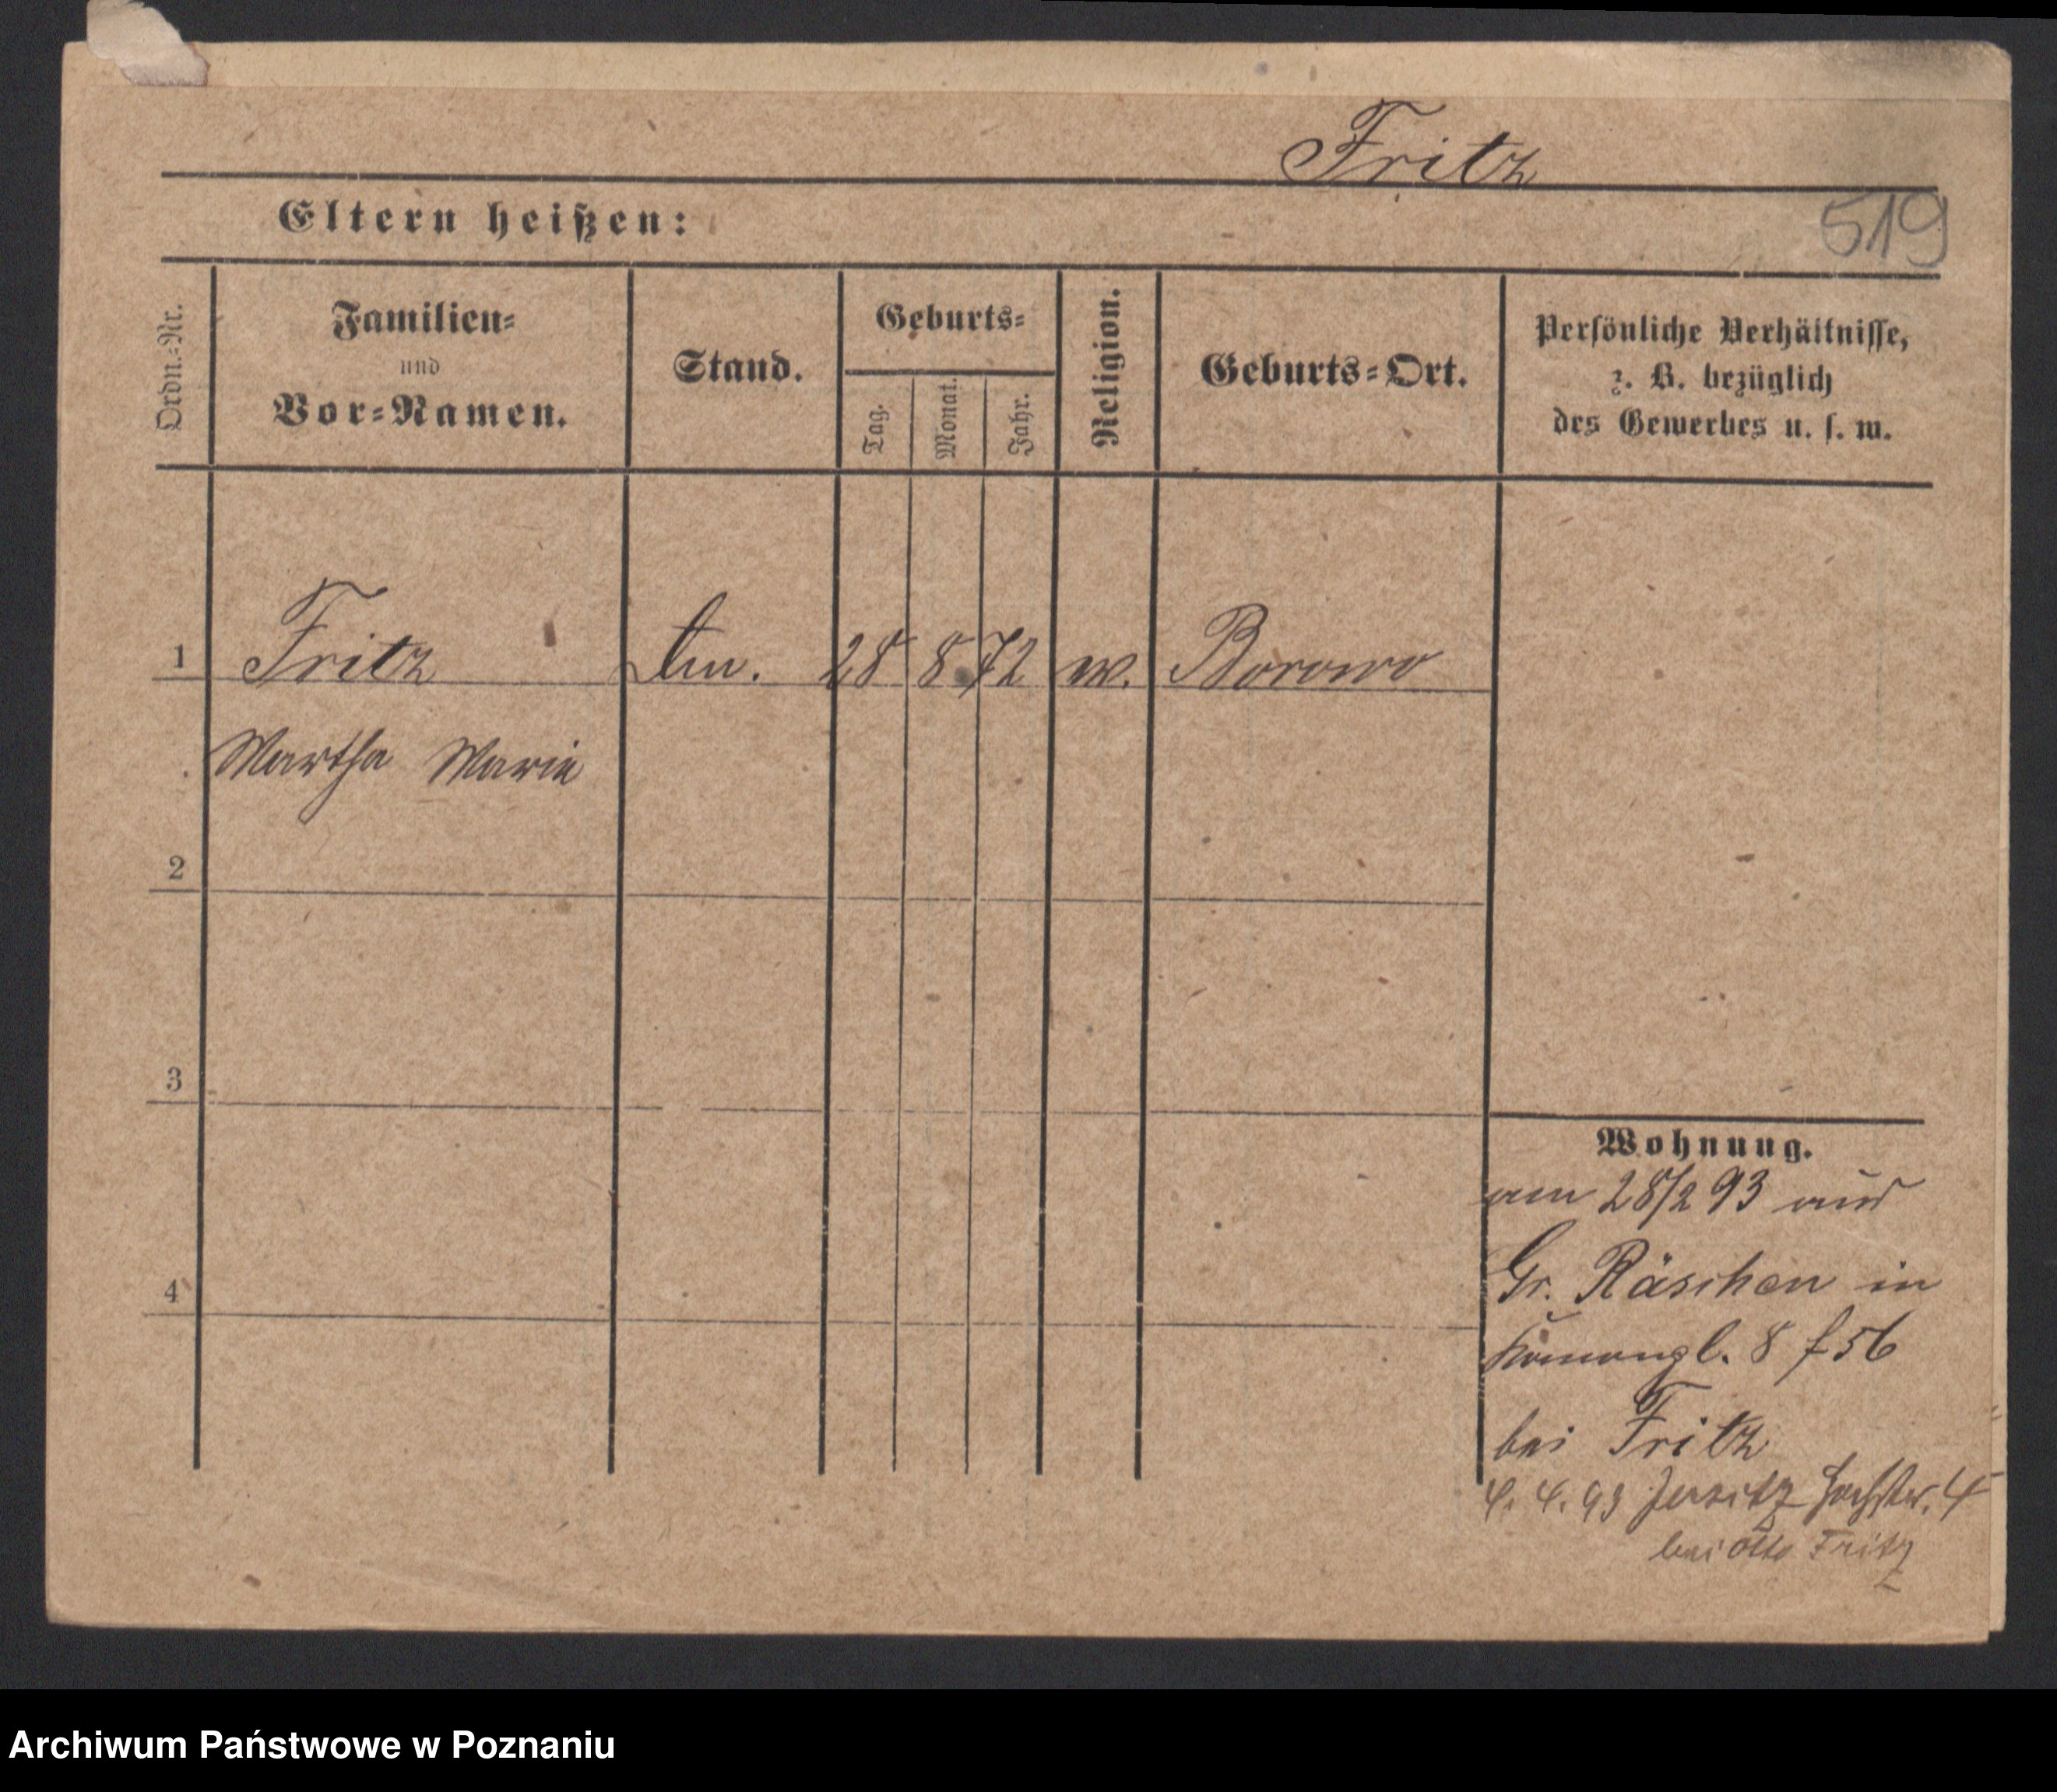 Fritz
519
Eltern heißen:
Ordn.=Nr.
Familien=
und
Vor=Namen.
Stand.
Geburts=
Tag.
Monat.
Jahr.
Religion.
Geburts=Ort.
Persönliche Verhältnisse,
z. B. bezüglich
des Gewerbes u. s. w.
1 Fritz 28 8 72 Borowo
Martha Marie
2
3
4
Wohnung.
am 28/2 93 aus
Gr. Räschen in
8 f 56
bei Fritz
4. 4. 93 Jersitz 4
bei Otto Fritz
Archiwum Państwowe w Poznaniu